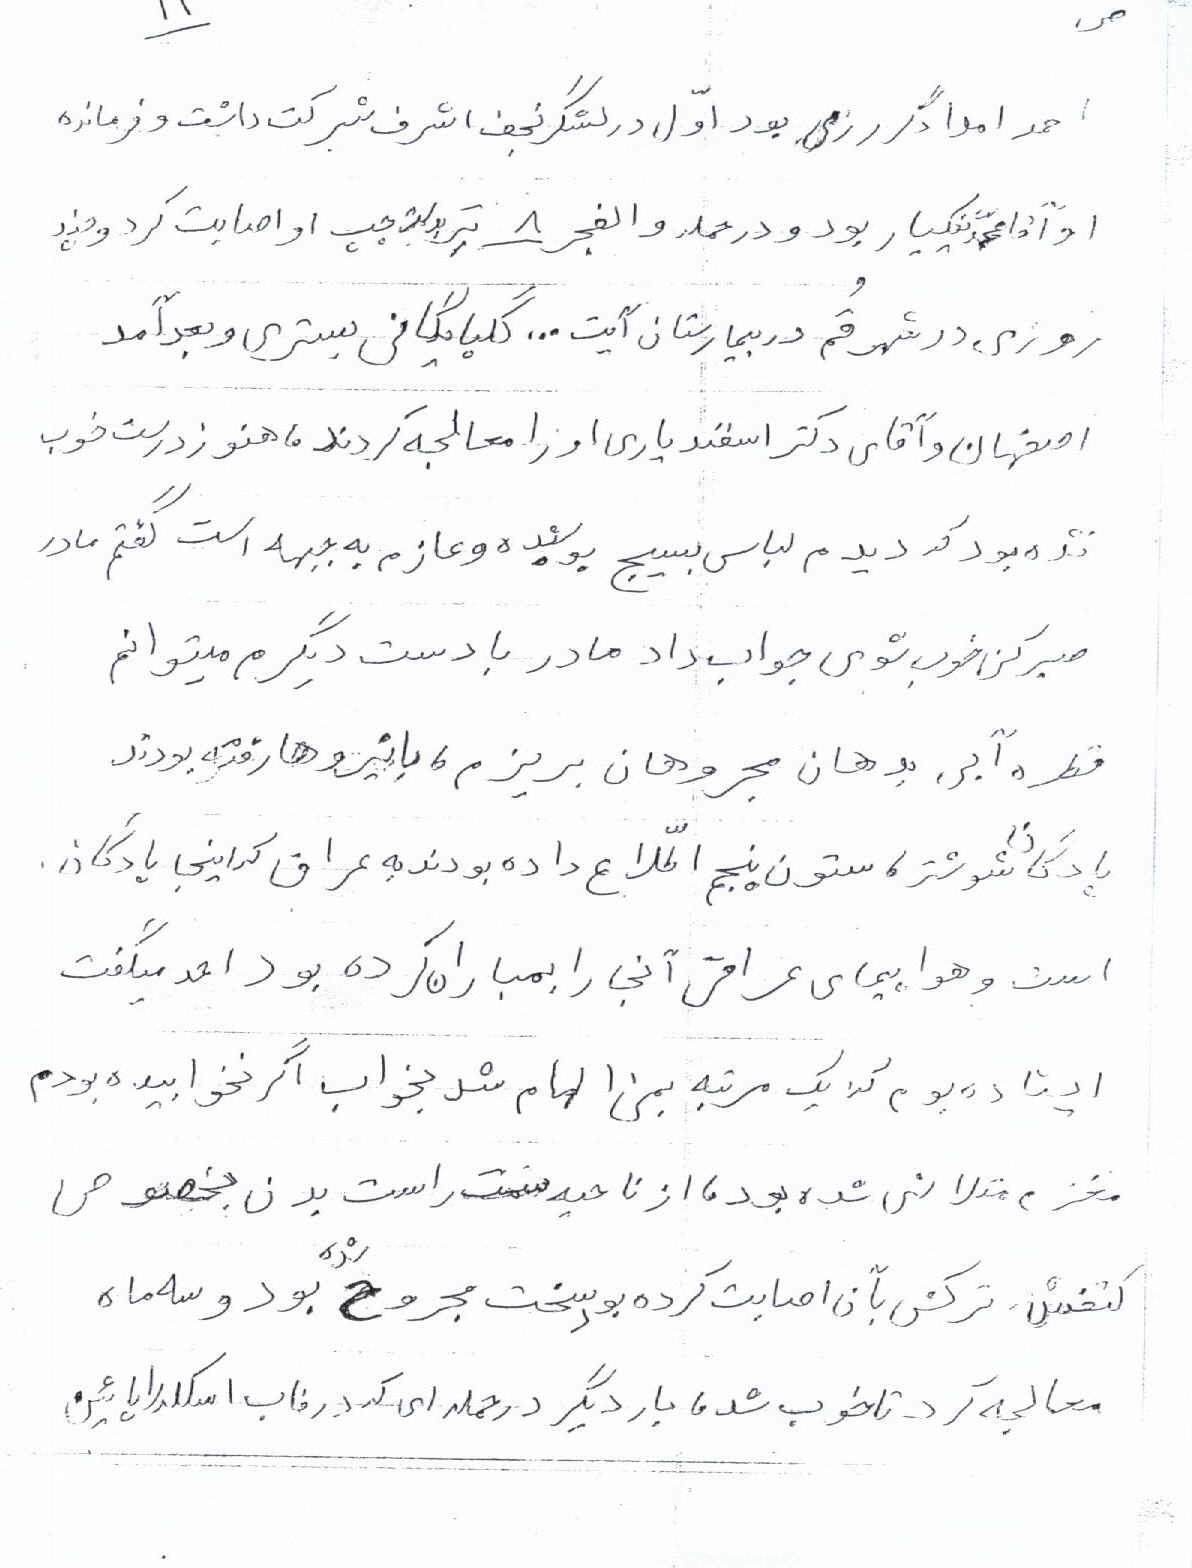 ص ۱۱
احمد امدادگر رزمی بود اوّل در لشگر نجف اشرف شرکت داشت و فرمانده
او آقا نیکیار بود و در حمله والفجر ۸ تیر چپ او اصابت کرد و چند
روزی در شهر قُم در بیمارستان آیت ... گلپایگانی بستری و بعد آمد
اصفهان و آقای دکتر اسفندیاری او را معالجه کردند، هنوز درست خوب
نشده بود که دیدم لباس بسیج پوشیده و عازم به جبهه است گفتم مادر
صبر کن خوب شوی جواب داد مادر با دست دیگرم میتوانم
قطره آبی بدهان مجروهان بریزم، با نیروها رفته بودند
پادگان شوشتر، ستون پنجم اطّلاع داده بودند به عراق که اینجا پادگان
است و هواپیمای عراقی آنجا را بمباران کرده بود احمد میگفت
ایستاده بودم که یک مرتبه بمن الهام شد بخواب اگر نخوابیده بودم
مغزم متلاشی شده بود، از ناحیه سمت راست بدن بخصوص
کتفش ترکش بآن اصابت کرده بود سخت مجروح شده بود و سه ماه
معالجه کرد تا خوب شد، بار دیگر در حمله‌ای که در فاب اسکله را پائین